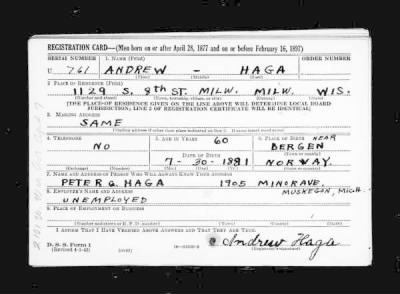 REGISTRATION CARD—(Men born on or after April 28, 1877 and on or before February 16, 1897)
SERIAL NUMBER 1. NAME (Print) ORDER NUMBER
U 761 ANDREW - HAGA
(First) (Middle) (Last)
2. PLACE OF RESIDENCE (Print)
1129 S. 8TH ST. MILW. MILW. WIS.
(Number and street) (Town, township, village, or city) (County) (State)
[THE PLACE OF RESIDENCE GIVEN ON THE LINE ABOVE WILL DETERMINE LOCAL BOARD
JURISDICTION; LINE 2 OF REGISTRATION CERTIFICATE WILL BE IDENTICAL]
3. MAILING ADDRESS
SAME
[Mailing address if other than place indicated on line 2. If same insert word same]
4. TELEPHONE 5. AGE IN YEARS 6. PLACE OF BIRTH
NO 60 NEAR BERGEN
DATE OF BIRTH (Town or county)
7-30-1881 NORWAY.
(Exchange) (Number) (Mo.) (Day) (Yr.) (State or country)
7. NAME AND ADDRESS OF PERSON WHO WILL ALWAYS KNOW YOUR ADDRESS
PETER G. HAGA 1905 MINOR AVE,
8. EMPLOYER'S NAME AND ADDRESS MUSKEGON, MICH.
UNEMPLOYED
9. PLACE OF EMPLOYMENT OR BUSINESS
(Number and street or R. F. D. number) (Town) (County) (State)
I AFFIRM THAT I HAVE VERIFIED ABOVE ANSWERS AND THAT THEY ARE TRUE.
D. S. S. Form 1
(Revised 4-1-42) (over) Andrew Haga
(Registrant's signature)